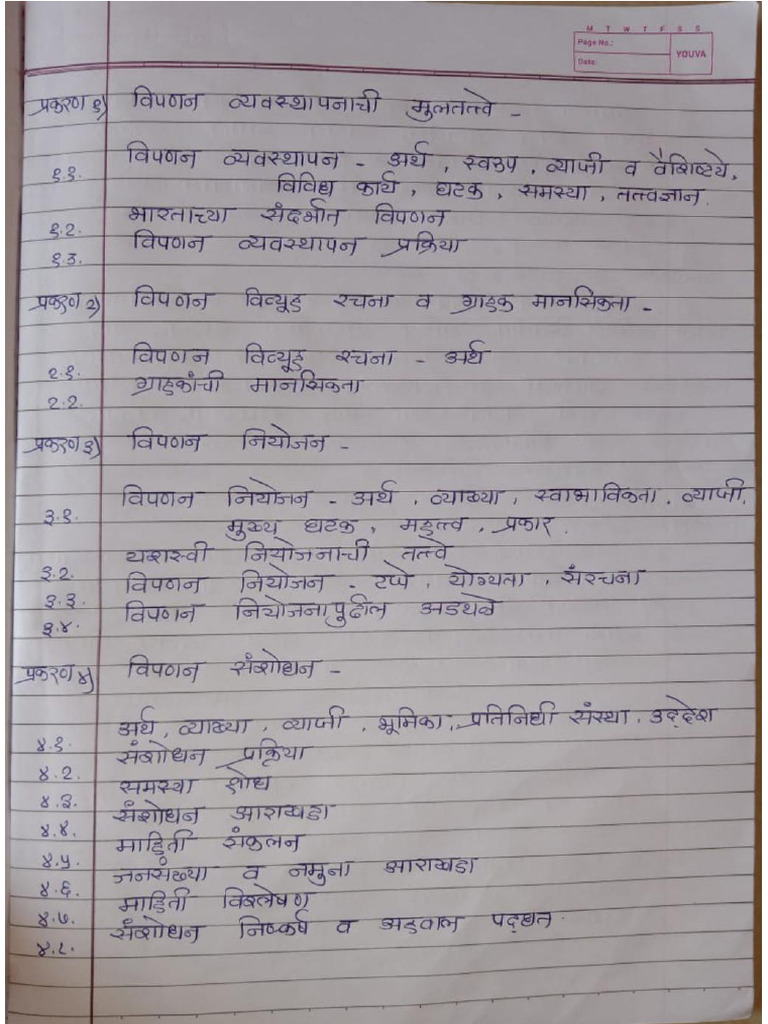 M T W T F S S
Page No.:
YOUVA
Date:
प्रकरण १) विपणन व्यवस्थापनाची मुलतत्त्वे -
१.१. विपणन व्यवस्थापन - अर्थ, स्वरुप, व्याप्ती व वैशिष्ट्ये,
विविध कार्य, घटक, समस्या, तत्त्वज्ञान.
१.२. भारताच्या संदर्भात विपणन
१.३. विपणन व्यवस्थापन प्रक्रिया
प्रकरण २) विपणन विव्यूह रचना व ग्राहक मानसिकता -
२.१. विपणन विव्यूह रचना - अर्थ
२.२. ग्राहकांची मानसिकता
प्रकरण ३) विपणन नियोजन -
३.१. विपणन नियोजन - अर्थ, व्याख्या, स्वाभाविकता, व्याप्ती,
मुख्य घटक, महत्त्व, प्रकार.
३.२. यशस्वी नियोजनाची तत्त्वे
३.३. विपणन नियोजन - टप्पे, योग्यता, संरचना
३.४. विपणन नियोजनापुढील अडथळे
प्रकरण ४) विपणन संशोधन -
४.१. अर्थ, व्याख्या, व्याप्ती, भूमिका, प्रतिनिधी संस्था, उद्देश
४.२. संशोधन प्रक्रिया
४.३. समस्या शोध
४.४. संशोधन आराखडा
४.५. माहिती संकलन
४.६. जनसंख्या व नमुना आराखडा
४.७. माहिती विश्लेषण
४.८. संशोधन निष्कर्ष व अहवाल पद्धत.